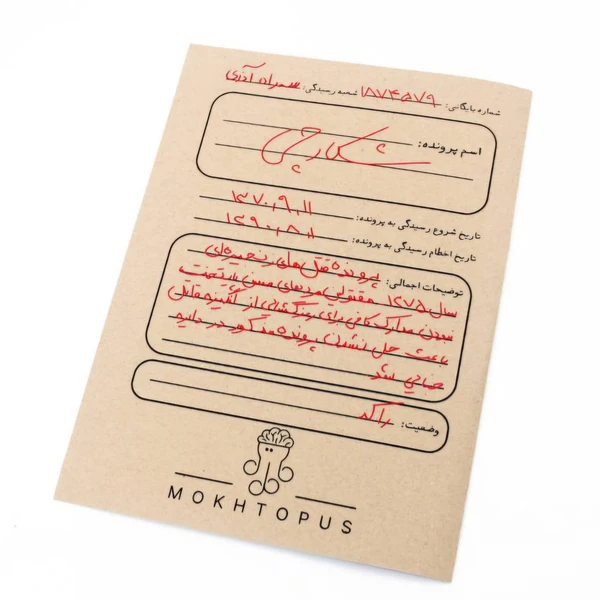 شماره بایگانی: ۱۸۷۴۵۷۹ شعبه رسیدگی: سهراد آذری
اسم پرونده:
شکارچی
تاریخ شروع رسیدگی به پرونده: ۱۳۷۰,۹,۱۱
تاریخ اختتام رسیدگی به پرونده: ۱۳۹۰,۸,۱
توضیحات اجمالی: پرونده قتل‌های زنجیره‌ای
سال ۱۳۷۵ مقتولین مردهای مسن پایتخت
نبودن مدارک کافی برای رمزگشایی از انگیزه قاتل
باعث حل نشدن پرونده مذکور در دایره
جنایی شد
وضعیت: راکد
MOKHTOPUS